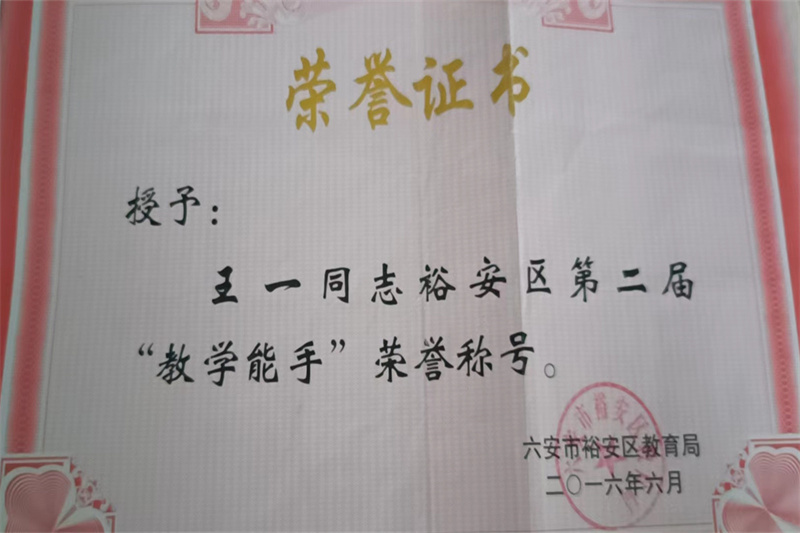 荣誉证书
授予：
王一同志裕安区第二届
“教学能手”荣誉称号。
六安市裕安区教育局
二〇一六年六月